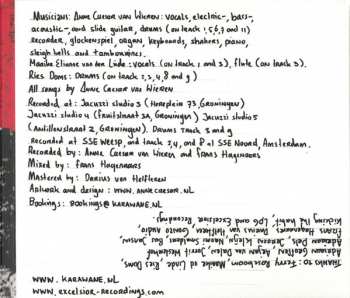 Musicians: Anne Caesar van Wieren: vocals, electric-, bass-,
acoustic-, and slide guitar, drums (on track 1,5,6,7 and 11)
recorder, glockenspiel, organ, keyboards, shakers, piano,
sleigh bells and tambourines.
Maaike Eliane van der Linde: vocals (on track 1 and 3), flute (on track 3).
Ries Doms: Drums (on track 2,3,4,8 and 9)
All songs by Anne Caesar van Wieren
Recorded at: Jacuzzi studio 3 (Hereplein 73, Groningen)
Jacuzzi studio 4 (Fruitstraat 2A, Groningen) Jacuzzi studio 5
(Antillenstraat 2, Groningen). Drums track 3 and 9
recorded at SSE Weesp, and track 2,4, and 8 at SSE Noord, Amsterdam.
Recorded by: Anne Caesar van Wieren and Frans Hagenaars
Mixed by: Frans Hagenaars
Mastered by: Darius van Helfteren
Artwork and design: www.annecaesar.nl
Bookings: bookings@karawane.nl
Thanks to: Ferry Roseboom, Maaike vd Linde, Ries Doms,
Adriaan Pels, Jeroen Kleijn, Naomi Smeyland, Bas Janssen,
Frans Hagenaars, Darius van Helfteren, Gonzo Audio,
Kicking the habit, Lps and Excelsior Recordings
www.karawane.nl
www.excelsior-recordings.com